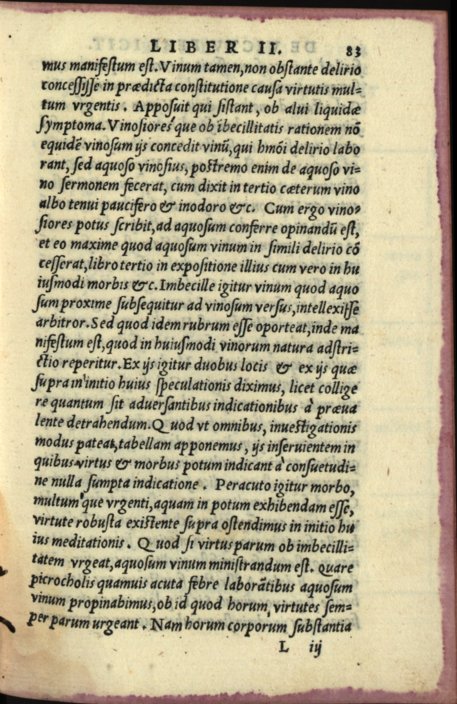 LIBER II. 83
mus manifestum est. Vinum tamen, non obstante delirio
concessisse in prædicta constitutione causa virtutis mul-
tum vrgentis. Apposuit qui sistant, ob alui liquidæ
symptoma. Vinosiores que ob ībecillitatis rationem nō
equidē vinosum ijs concedit vinū, qui hmōi delirio labo
rant, sed aquoso vinosius, postremo enim de aquoso vi-
no sermonem fecerat, cum dixit in tertio cæterum vino
albo tenui paucifero & inodoro &c. Cum ergo vino-
siores potus scribit, ad aquosum conferre opinandū est,
et eo maxime quod aquosum vinum in simili delirio cō
cesserat, libro tertio in expositione illius cum vero in hu
iusmodi morbis &c. Imbecille igitur vinum quod aquo
sum proxime subsequitur ad vinosum versus, intellexisse
arbitror. Sed quod idem rubrum esse oporteat, inde ma
nifestum est, quod in huiusmodi vinorum natura adstri-
ctio reperitur. Ex ijs igitur duobus locis & ex ijs quæ
supra in initio huius speculationis diximus, licet collige
re quantum sit aduersantibus indicationibus à præua
lente detrahendum. Quod vt omnibus, inuestigationis
modus pateat, tabellam apponemus, ijs inseruientem in
quibus virtus & morbus potum indicant à consuetudi-
ne nulla sumpta indicatione. Peracuto igitur morbo,
multum que vrgenti, aquam in potum exhibendam esse,
virtute robusta existente supra ostendimus in initio hu
ius meditationis. Quod si virtus parum ob imbecilli-
tatem vrgeat, aquosum vinum ministrandum est. quare
picrocholis quamuis acuta febre laborātibus aquosum
vinum propinabimus, ob id quod horum virtutes sem-
per parum vrgeant. Nam horum corporum substantia
L iij